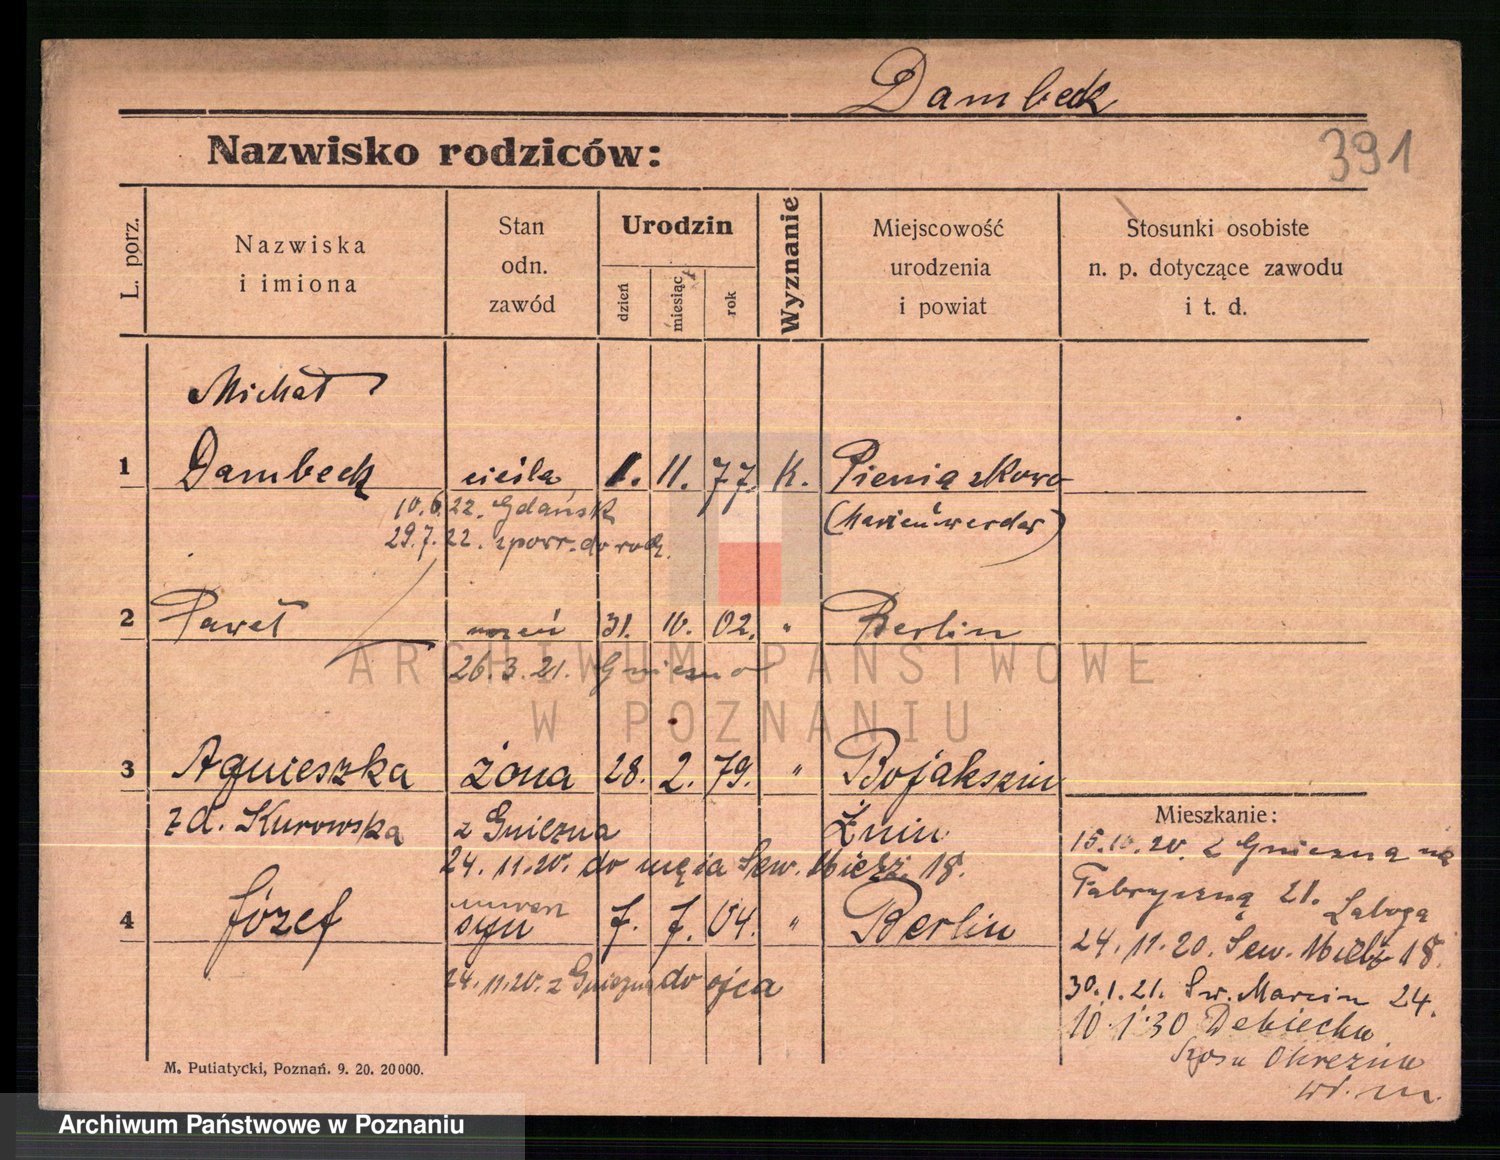 Dambeck
Nazwisko rodziców:
391
L. porz.
Nazwiska
i imiona
Stan
odn.
zawód
Urodzin
dzień
miesiąc
rok
Wyznanie
Miejscowość
urodzenia
i powiat
Stosunki osobiste
n. p. dotyczące zawodu
i t. d.
Michał
1 Dambeck cieśla 1. 11. 77. K. Pieniązkowo
10.6.22. Gdańsk (Marienwerder)
29.7.22. z powr. do rodz.
2 Paweł uczeń 31. 10. 02. " Berlin
26.3.21. Gniezno
3 Agnieszka żona 28. 2. 79. "
zd. Kurowska z Gniezna Żnin
24.11.20. do męża Sew. Mielż. 18.
4 Józef syn 7. 7. 04. " Berlin
24.11.20. z Gniezna do ojca
Mieszkanie:
15.10.20. z Gniezna na
Fabryczną 21.
24.11.20. Sew. Mielż 18.
30.1.21. Św. Marcin 24.
10.1.30
M. Putiatycki, Poznań. 9. 20. 20000.
ARCHIWUM PAŃSTWOWE
W POZNANIU
Archiwum Państwowe w Poznaniu